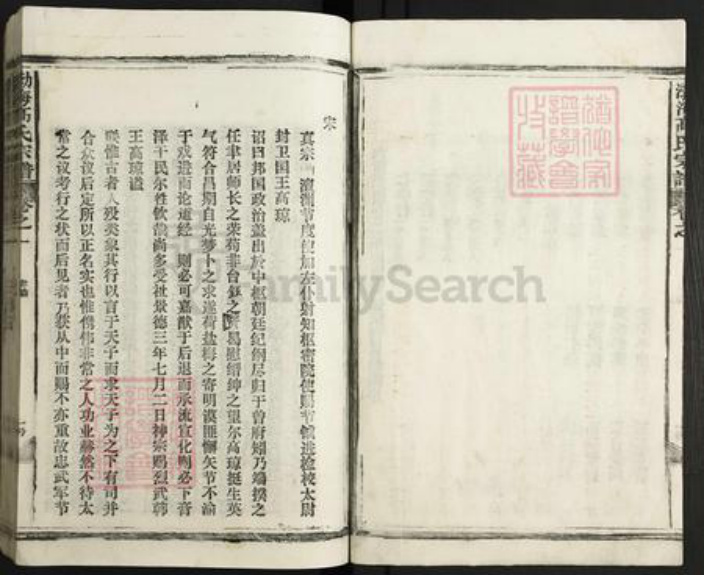 渤海高氏宗譜
宋
真宗 澶渊节度使加左仆射知枢密院使赐节钺进检校太尉
封卫国王高琼
诏曰邦国政治盖出於中枢朝廷纪纲尽归于曾府矧乃端揆之
任聿居师长之荣苟非台鈺之 曷慰缙绅之望尔高琼挺生英
气符合昌期自光梦卜之求遂荷盐梅之寄明谟匪懈矢节不渝
于戏进而论道经 则必可嘉猷于后退而承流宣化则必下
泽于民尔姓钦哉尚多受祉景德三年七月二日神宗赐烈武韩
王高琼谥
朕惟古者人殁类象其行以言于天子而求天子为之下有司并
合众议后定所以正名实也惟儁伟非常之人功业赫然不待太
常之议考行之状而后见者乃获从中而赐不亦重故忠武军节
FamilySearch